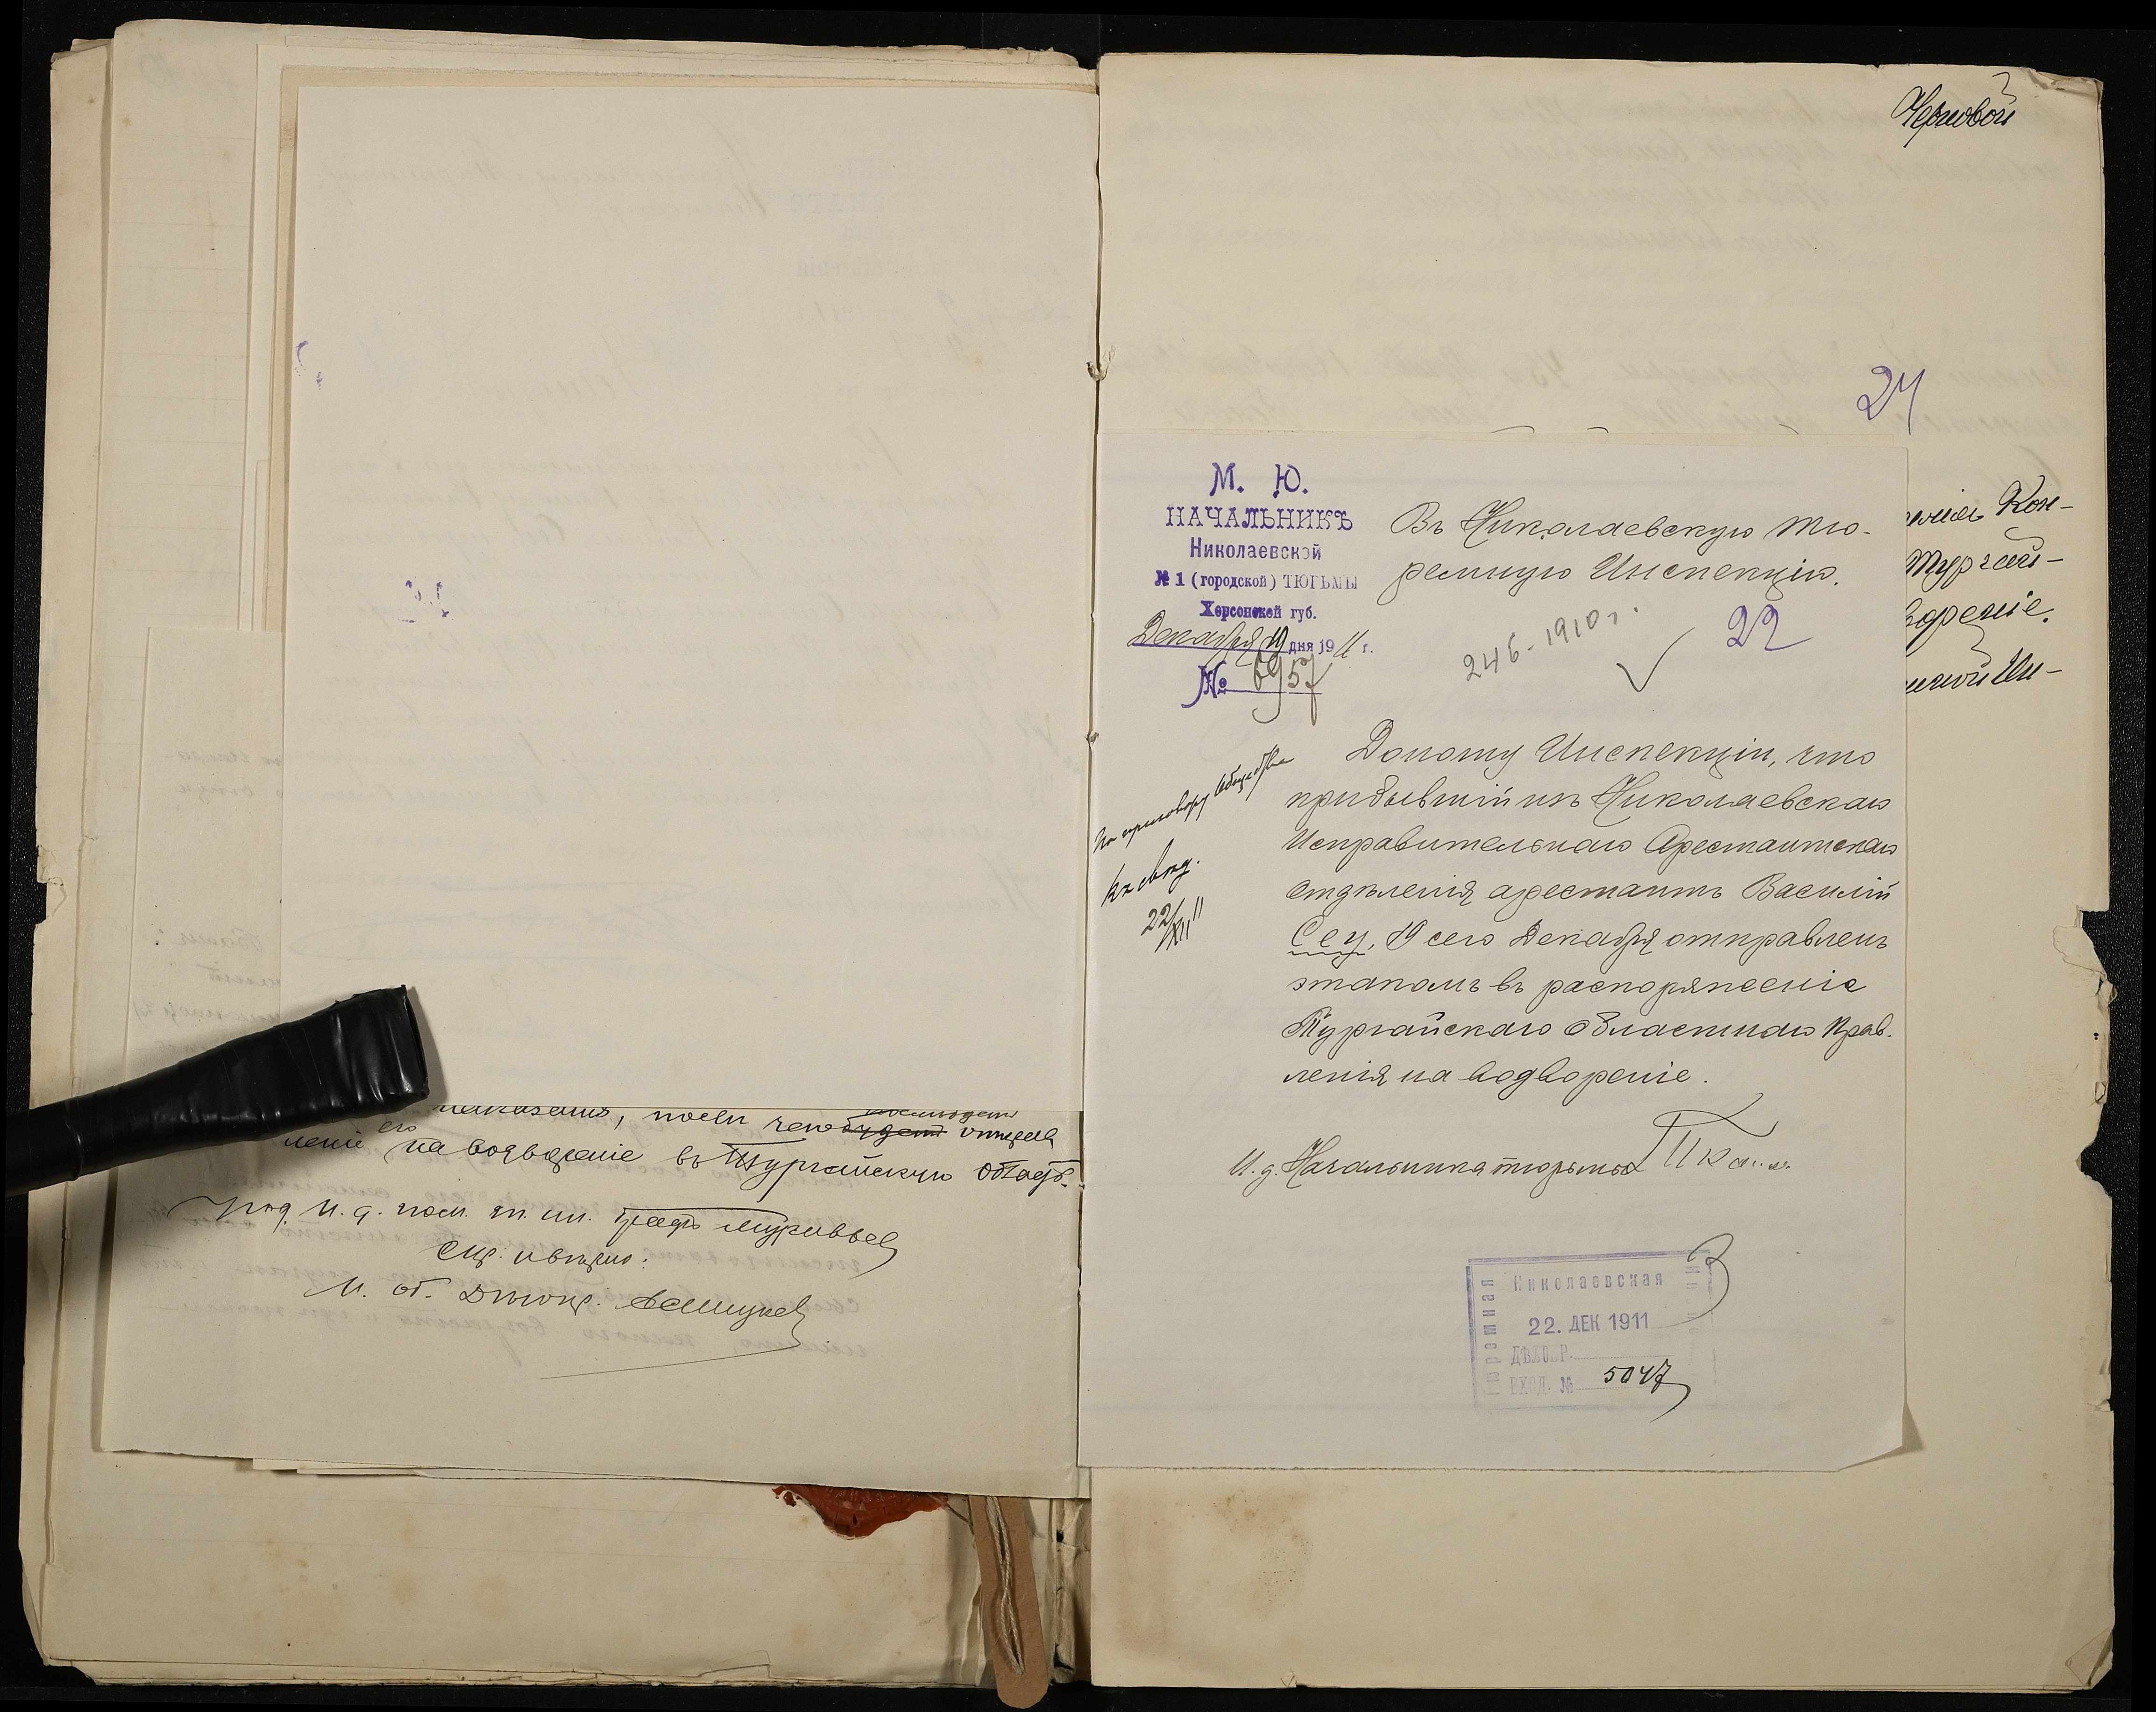 наказанія, послѣ чего будетъ отправ
леніе его на водвореніе въ Тургайскую область.
Под. И. д. пом. т. ин. графъ Муравьев
Скр. и вѣрно:
И. об. Дѣлопр.
Черновой
24
М. Ю.
НАЧАЛЬНИКЪ
Николаевской
№ 1 (городской) ТЮРЬМЫ
Херсонской губ.
Декабря 19 дня 1911 г.
№ 6957
Въ Николаевскую тю-
ремную Инспекцію.
246-1910 г.
22
Кон-
Тургай-
вореніе.
Ин-
По приговору общества
къ свѣд.
22/XII 11
Доношу Инспекціи, что
прибывшій изъ Николаевскаго
Исправительнаго Арестантскаго
Отдѣленія арестантъ Василій
Сеу, 19 сего Декабря отправленъ
этапомъ въ распоряженіе
Тургайскаго Областнаго Прав-
ленія на водвореніе.
И. д. Начальника тюрьмы
Николаевская
22. ДЕК 1911
ВХОД. № 5047